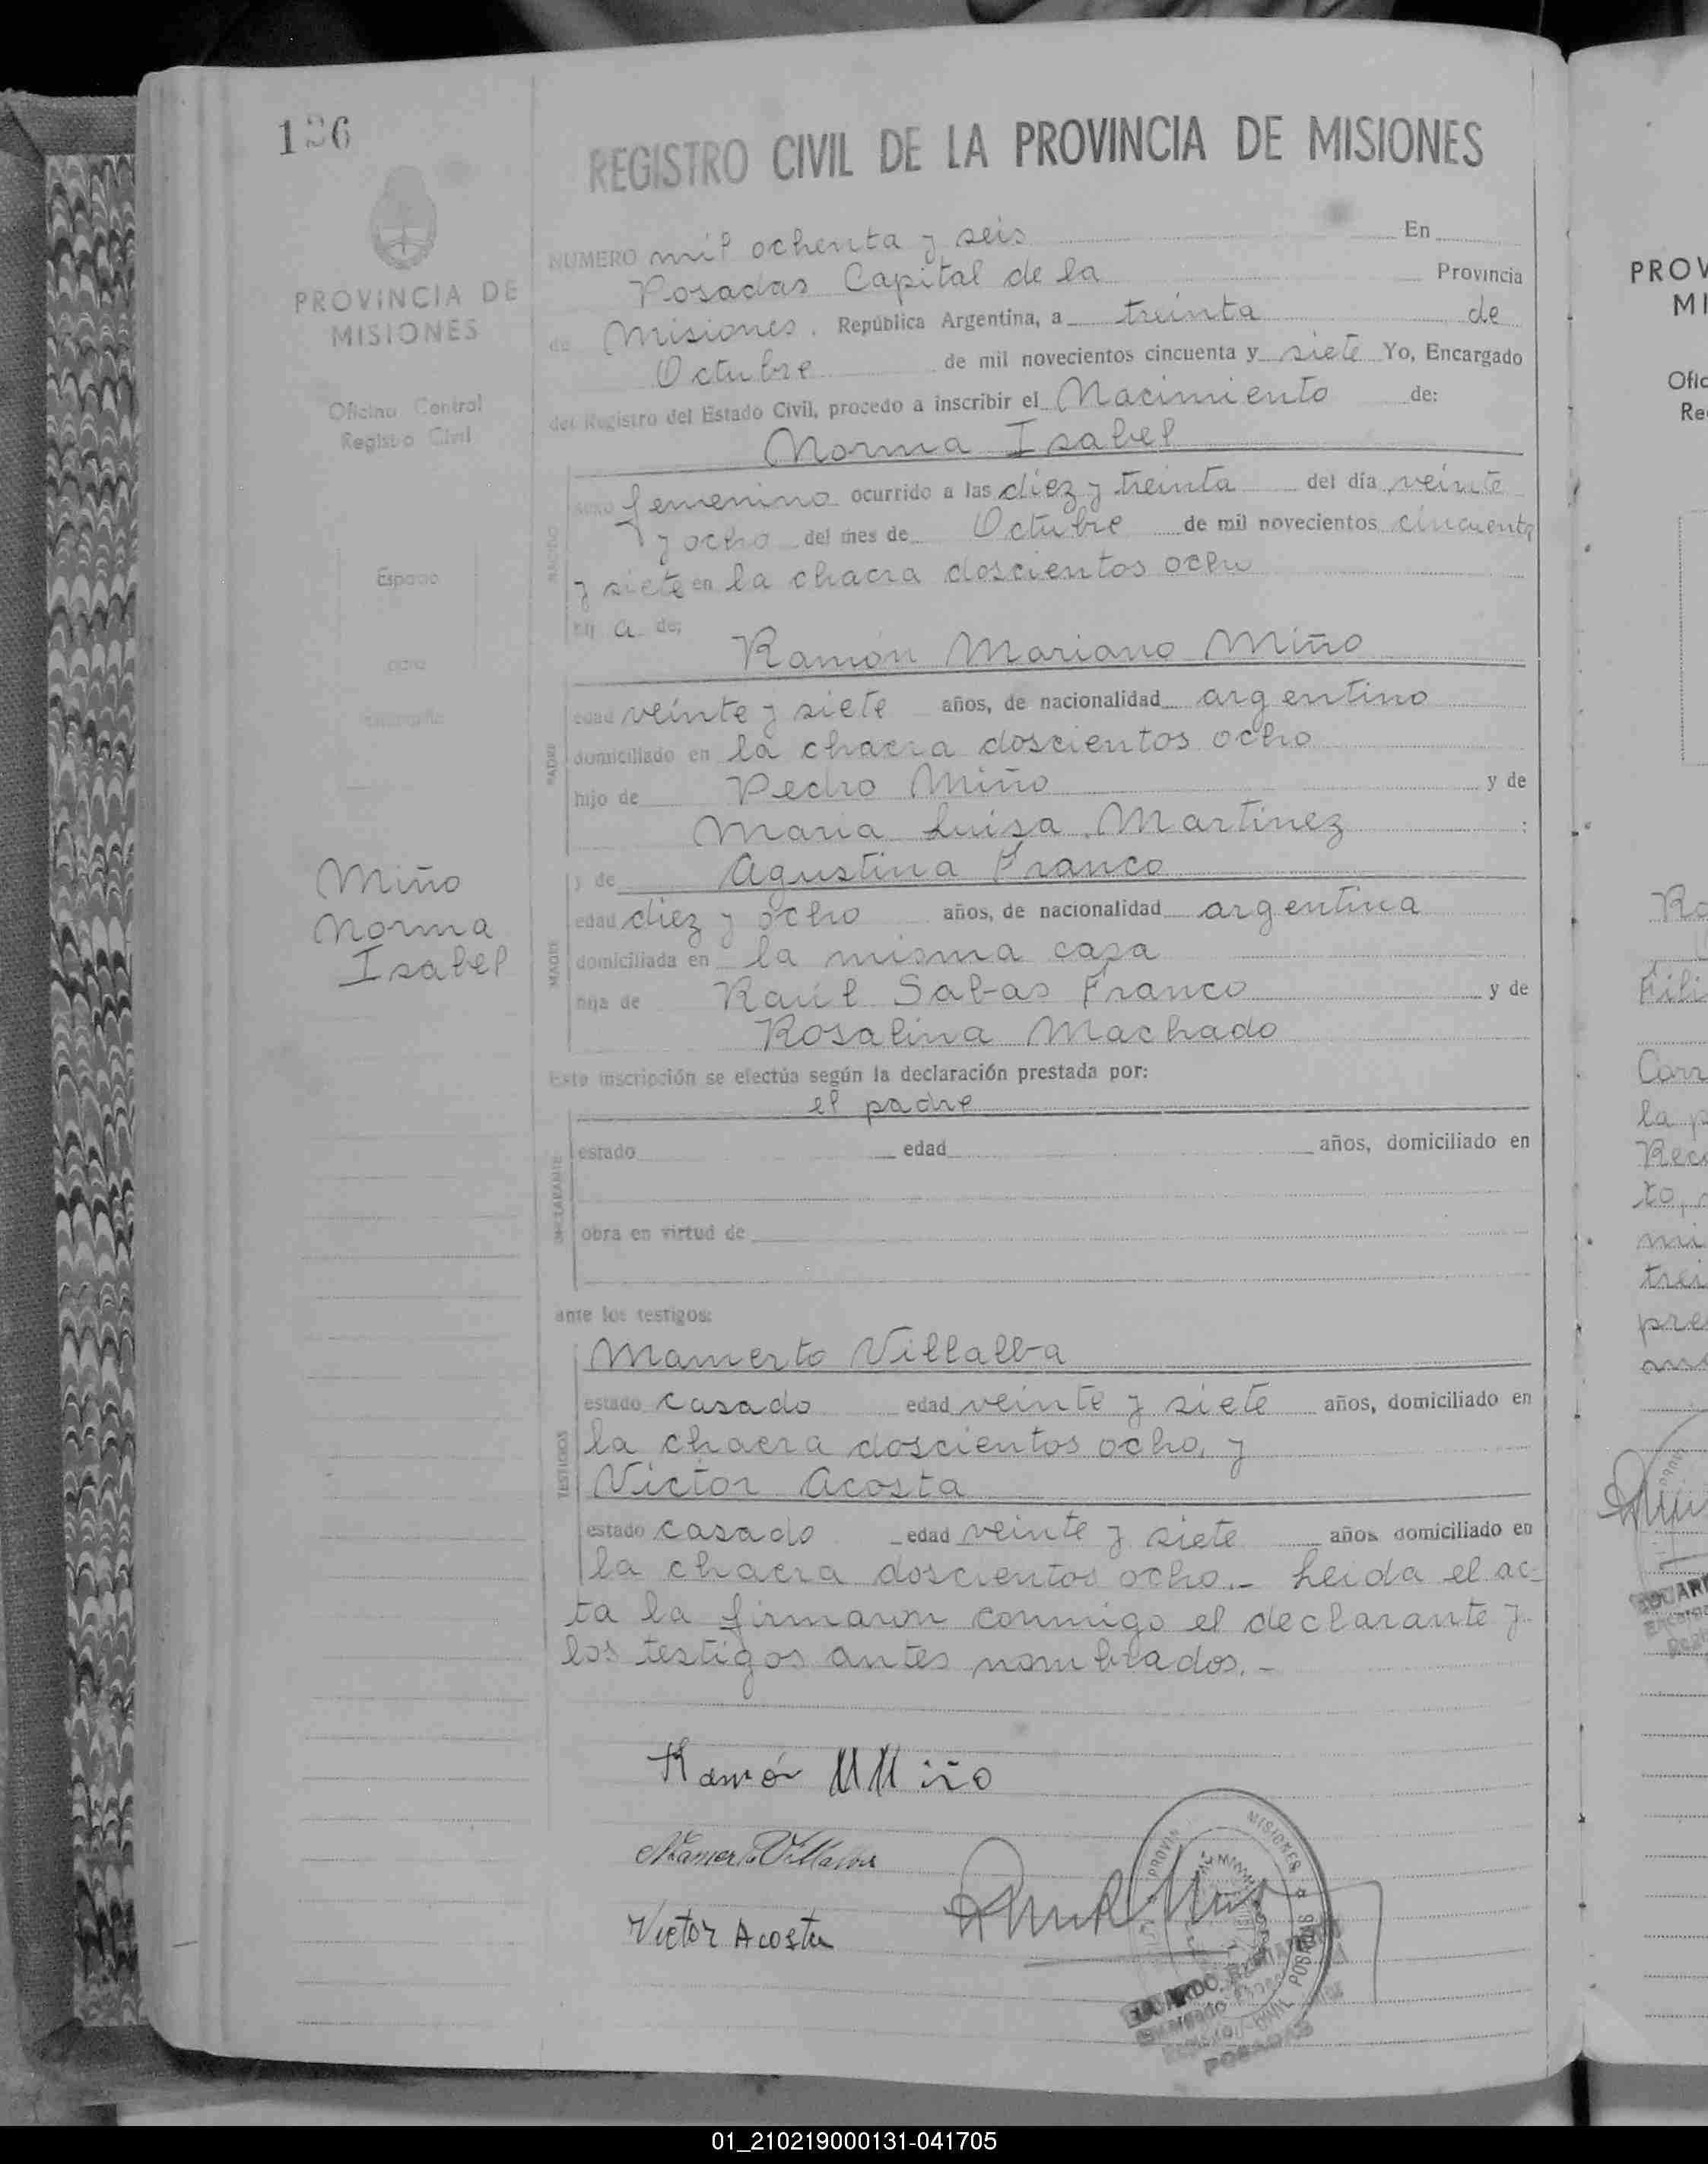 136
REGISTRO CIVIL DE LA PROVINCIA DE MISIONES
PROVINCIA DE
MISIONES
Oficina Central
Registro Civil
Espacio
para
NUMERO mil ochenta y seis En
Posadas Capital de la Provincia
de Misiones. República Argentina, a treinta de
Octubre de mil novecientos cincuenta y siete Yo, Encargado
del Registro del Estado Civil, procedo a inscribir el Nacimiento de:
Norma Isabel
NACIDO
sexo femenino ocurrido a las diez y treinta del día veinte
y ocho del mes de Octubre de mil novecientos cincuenta
y siete en la chacra doscientos ocho
hij a de;
Ramón Mariano Miño
PADRE
edad veinte y siete años, de nacionalidad argentino
domiciliado en la chacra doscientos ocho
hijo de Pedro Miño y de
Maria Luisa Martinez :
y de Agustina Franco
MADRE
edad diez y ocho años, de nacionalidad argentina
domiciliada en la misma casa
hija de Raúl Sabas Franco y de
Rosalina Machado
Miño
Norma
Isabel
Esta inscripción se efectúa según la declaración prestada por:
el padre
DECLARANTE
estado edad años, domiciliado en
obra en virtud de
ante los testigos:
TESTIGOS
Mamerto Villalba
estado casado edad veinte y siete años, domiciliado en
la chacra doscientos ocho, y
Victor Acosta
estado casado edad veinte y siete años domiciliado en
la chacra doscientos ocho.- Leida el ac-
ta la firmaron conmigo el declarante y
los testigos antes nombrados.-
Ramón M Miño
Mamerto Villalba
Victor Acosta
PROVIN MISIONES
POSADAS
EDUARDO
POSADAS
PROV
MI
Ofic
Re
Ro
Fili
Corr
la p
Reco
to,
mi
trei
pre
01_210219000131-041705